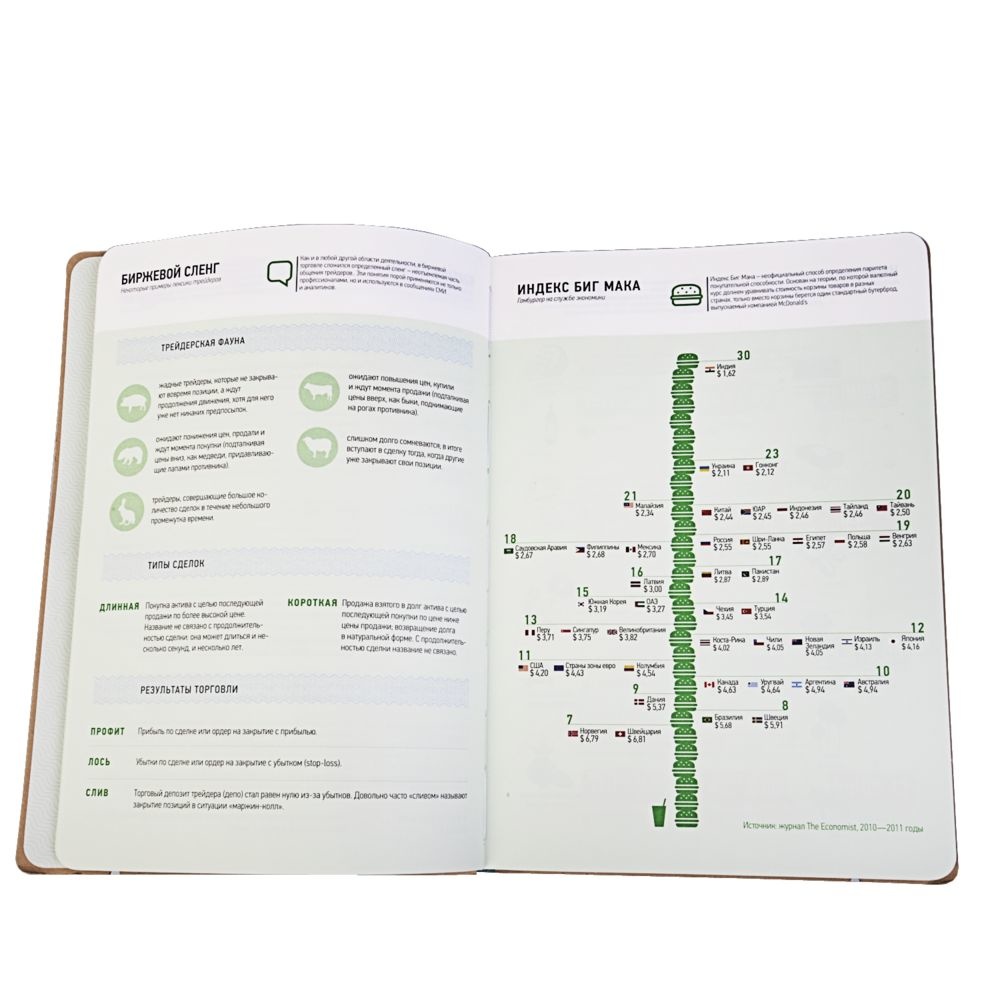 БИРЖЕВОЙ СЛЕНГ
Некоторые примеры лексики трейдеров
Как и в любой другой области деятельности, в биржевой
торговле сложился определенный сленг – неотъемлемая часть
общения трейдеров. Эти понятия порой применяются не только
профессионалами, но и используются в сообщениях СМИ
и аналитиков.
ТРЕЙДЕРСКАЯ ФАУНА
жадные трейдеры, которые не закрыва-
ют вовремя позиции, а ждут
продолжения движения, хотя для него
уже нет никаких предпосылок.
ожидают повышения цен, купили
и ждут момента продажи (подталкивая
цены вверх, как быки, поднимающие
на рогах противника).
ожидают понижения цен, продали и
ждут момента покупки (подталкивая
цены вниз, как медведи, придавливаю-
щие лапами противника).
слишком долго сомневаются, в итоге
вступают в сделку тогда, когда другие
уже закрывают свои позиции.
трейдеры, совершающие большое ко-
личество сделок в течение небольшого
промежутка времени.
ТИПЫ СДЕЛОК
ДЛИННАЯ
Покупка актива с целью последующей
продажи по более высокой цене.
Название не связано с продолжитель-
ностью сделки: она может длиться и не-
сколько секунд, и несколько лет.
КОРОТКАЯ
Продажа взятого в долг актива с целью
последующей покупки по цене ниже
цены продажи; возвращение долга
в натуральной форме. С продолжитель-
ностью сделки название не связано.
РЕЗУЛЬТАТЫ ТОРГОВЛИ
ПРОФИТ Прибыль по сделке или ордер на закрытие с прибылью.
ЛОСЬ Убытки по сделке или ордер на закрытие с убытком (stop-loss).
СЛИВ Торговый депозит трейдера (депо) стал равен нулю из-за убытков. Довольно часто «сливом» называют
закрытие позиций в ситуации «маржин-колл».
ИНДЕКС БИГ МАКА
Гамбургер на службе экономики
Индекс Биг Мака – неофициальный способ определения паритета
покупательной способности. Основан на теории, по которой валютный
курс должен уравнивать стоимость корзины товаров в разных
странах, только вместо корзины берется один стандартный бутерброд,
выпускаемый компанией McDonald's
30
Индия
$ 1,62
23
Украина Гонконг
$ 2,11 $ 2,12
21
Малайзия
$ 2,34
20
Китай ЮАР Индонезия Тайланд Тайвань
$ 2,44 $ 2,45 $ 2,46 $ 2,46 $ 2,50
19
Россия Шри-Ланка Египет Польша Венгрия
$ 2,55 $ 2,55 $ 2,57 $ 2,58 $ 2,63
18
Саудовская Аравия Филиппины Мексика
$ 2,67 $ 2,68 $ 2,70
17
Литва Пакистан
$ 2,87 $ 2,89
16
Латвия
$ 3,00
15
Южная Корея ОАЭ
$ 3,19 $ 3,27
14
Чехия Турция
$ 3,45 $ 3,54
13
Перу Сингапур Великобритания
$ 3,71 $ 3,75 $ 3,82
12
Коста-Рика Чили Новая Зеландия Израиль Япония
$ 4,02 $ 4,05 $ 4,05 $ 4,13 $ 4,16
11
США Страны зоны евро Колумбия
$ 4,20 $ 4,43 $ 4,54
10
Канада Уругвай Аргентина Австралия
$ 4,63 $ 4,64 $ 4,94 $ 4,94
9
Дания
$ 5,37
8
Бразилия Швеция
$ 5,68 $ 5,91
7
Норвегия Швейцария
$ 6,79 $ 6,81
Источник: журнал The Economist, 2010—2011 годы